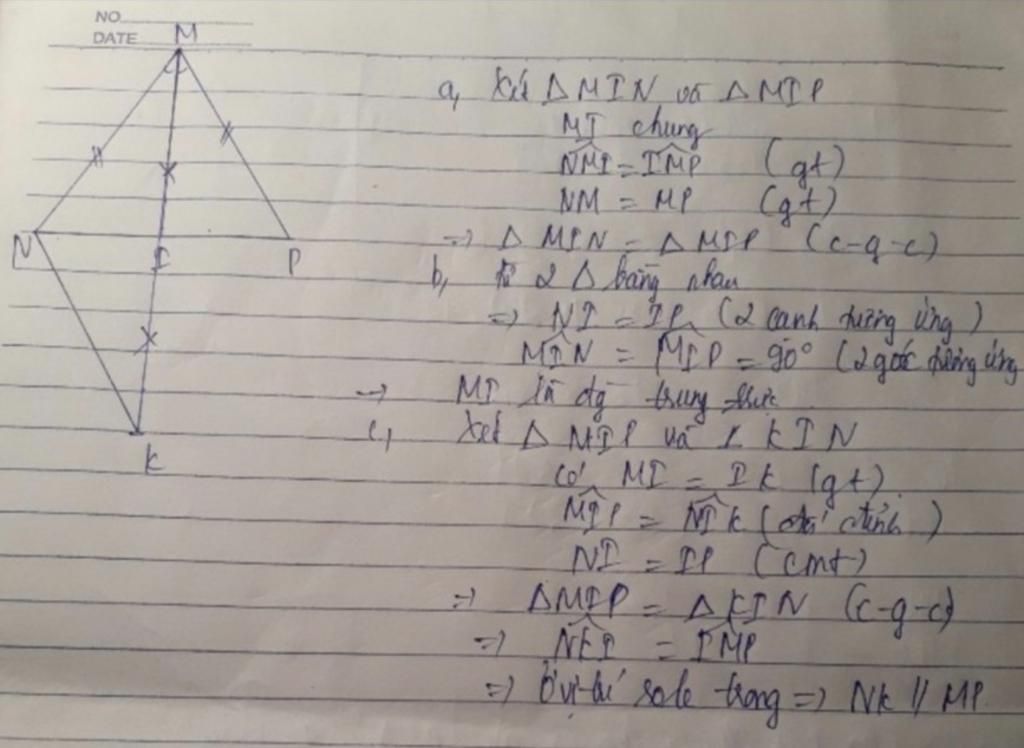 NO
DATE
M
N
I
P
K
a, Xét △MIN và △MIP
MI chung
NMI = IMP (gt)
NM = MP (gt)
=> △ MIN = △ MIP (c-g-c)
b, từ 2 △ bằng nhau
=> NI = IP (2 cạnh tương ứng)
MIN = MIP = 90° (2 góc tương ứng
-> MI là đg trung trực
c, Xét △ MIP và △ KIN
có MI = IK (gt)
MIP = NIK (đối đỉnh)
NI = IP (cmt)
=> △MIP = △KIN (c-g-c)
=> NKI = IMP
=> Ở vị trí sole trong => NK // MP